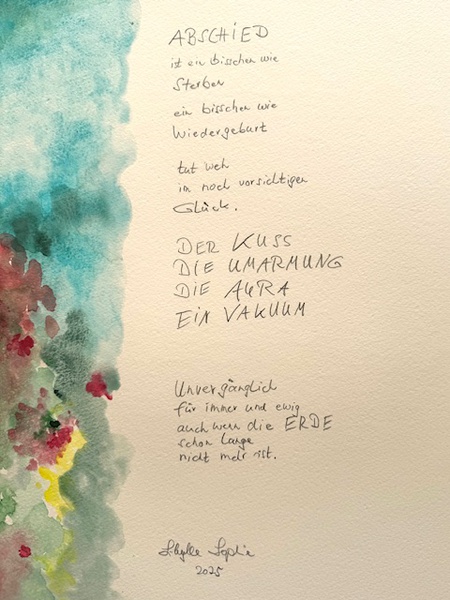 ABSCHIED
ist ein bisschen wie
Sterben
ein bisschen wie
Wiedergeburt
tut weh
im noch vorsichtigen
Glück.
DER KUSS
DIE UMARMUNG
DIE AURA
EIN VAKUUM
Unvergänglich
für immer und ewig
auch wenn die ERDE
schon lange
nicht mehr ist.
Sibylle Sophie
2025